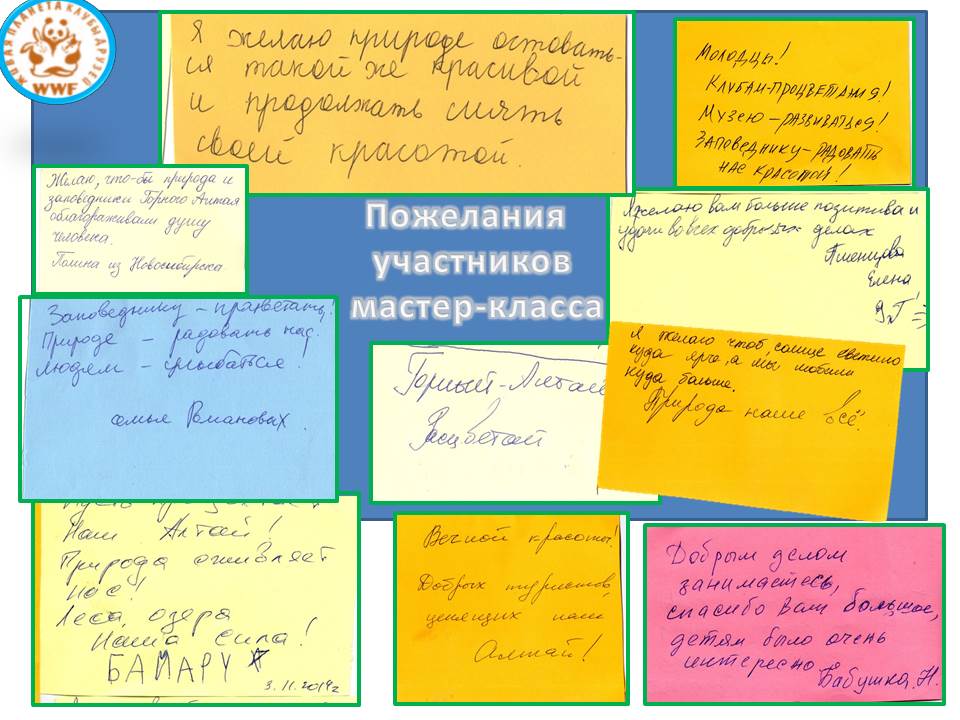 ЖИВАЯ ПЛАНЕТА КЛУБЫ ДРУЗЕЙ
WWF
Я желаю природе оставать-
ся такой же красивой
и продолжать сиять
своей красотой.
Молодцы!
Клубам-процветания!
Музею-развиваться!
Заповеднику-радовать
нас красотой!
Желаю, что-бы природа и
заповедники Горного Алтая
облагораживали душу
человека.
Полина из Новосибирска
Пожелания
участников
мастер-класса
Я желаю вам больше позитива и
удачи во всех добрых делах
Пшеницева
Елена
Заповеднику - процветать!
Природе - радовать нас.
Людям - улыбаться!
семья Романовых.
Горный-Алтай
Расцветай
Я желаю чтоб, солнце светило
куда ярче, а мы любили
куда больше.
Природа наше всё.
Пусть
Наш Алтай!
Природа оживляет
нас!
Леса, озера
Наша сила!
БАЙАРУ
3.11.2019г
Вечной красоты!
Добрых туристов,
ценящих наш
Алтай!
Добрым делом
занимаетесь,
спасибо вам большое,
детям было очень
интересно
Бабушка.Н.